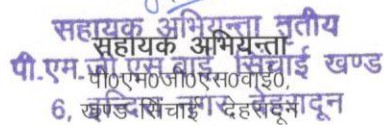 सहायक अभियन्ता तृतीय
सहायक अभियन्ता
पी.एम.जी.एस.वाई. सिंचाई खण्ड
पी०एम०जी०एस०वाई०,
6, नगर देहरादून
खण्ड सिंचाई देहरादून